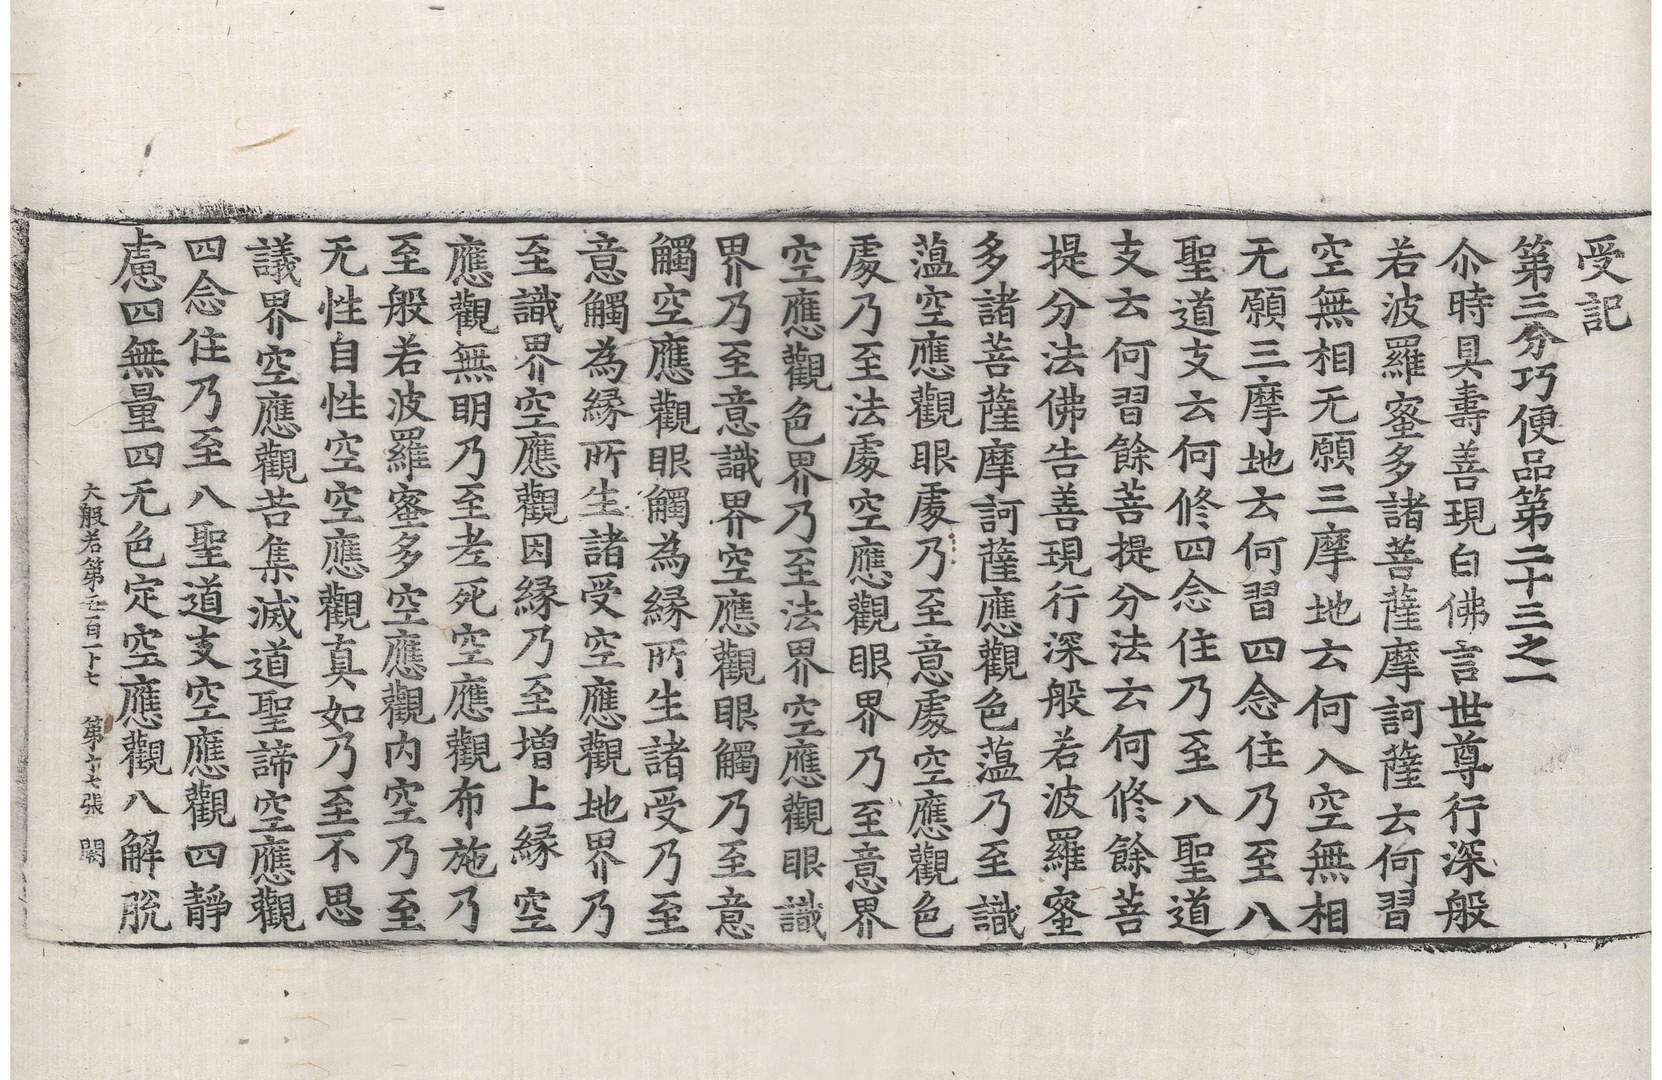 受記
第三分巧便品第二十三之一
尒時具壽善現白佛言世尊行深般
若波羅蜜多諸菩薩摩訶薩云何習
空無相无願三摩地云何入空無相
无願三摩地云何習四念住乃至八
聖道支云何修四念住乃至八聖道
支云何習餘菩提分法云何修餘菩
提分法佛告善現行深般若波羅蜜
多諸菩薩摩訶薩應觀色蕰乃至識
蕰空應觀眼處乃至意處空應觀色
處乃至法處空應觀眼界乃至意界
空應觀色界乃至法界空應觀眼識
界乃至意識界空應觀眼觸乃至意
觸空應觀眼觸為緣所生諸受乃至
意觸為緣所生諸受空應觀地界乃
至識界空應觀因緣乃至增上緣空
應觀無明乃至老死空應觀布施乃
至般若波羅蜜多空應觀內空乃至
无性自性空空應觀真如乃至不思
議界空應觀苦集滅道聖諦空應觀
四念住乃至八聖道支空應觀四靜
慮四無量四无色定空應觀八解脫
大般若第五百一十七 第十七張 闕